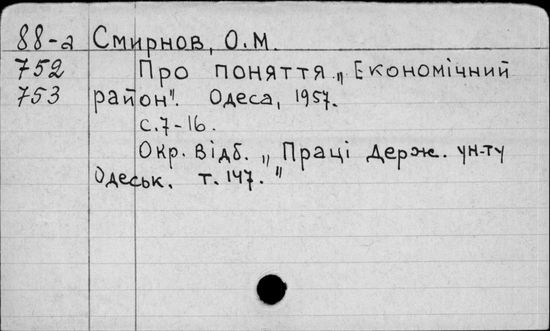 88-а Смирнов, О.М.
752 Про поняття „ Економічний
753 район". Одеса, 1957.
с.7-16.
Окр. Відб. „ Праці Держ. ун-ту
Одеськ. т. 147. "